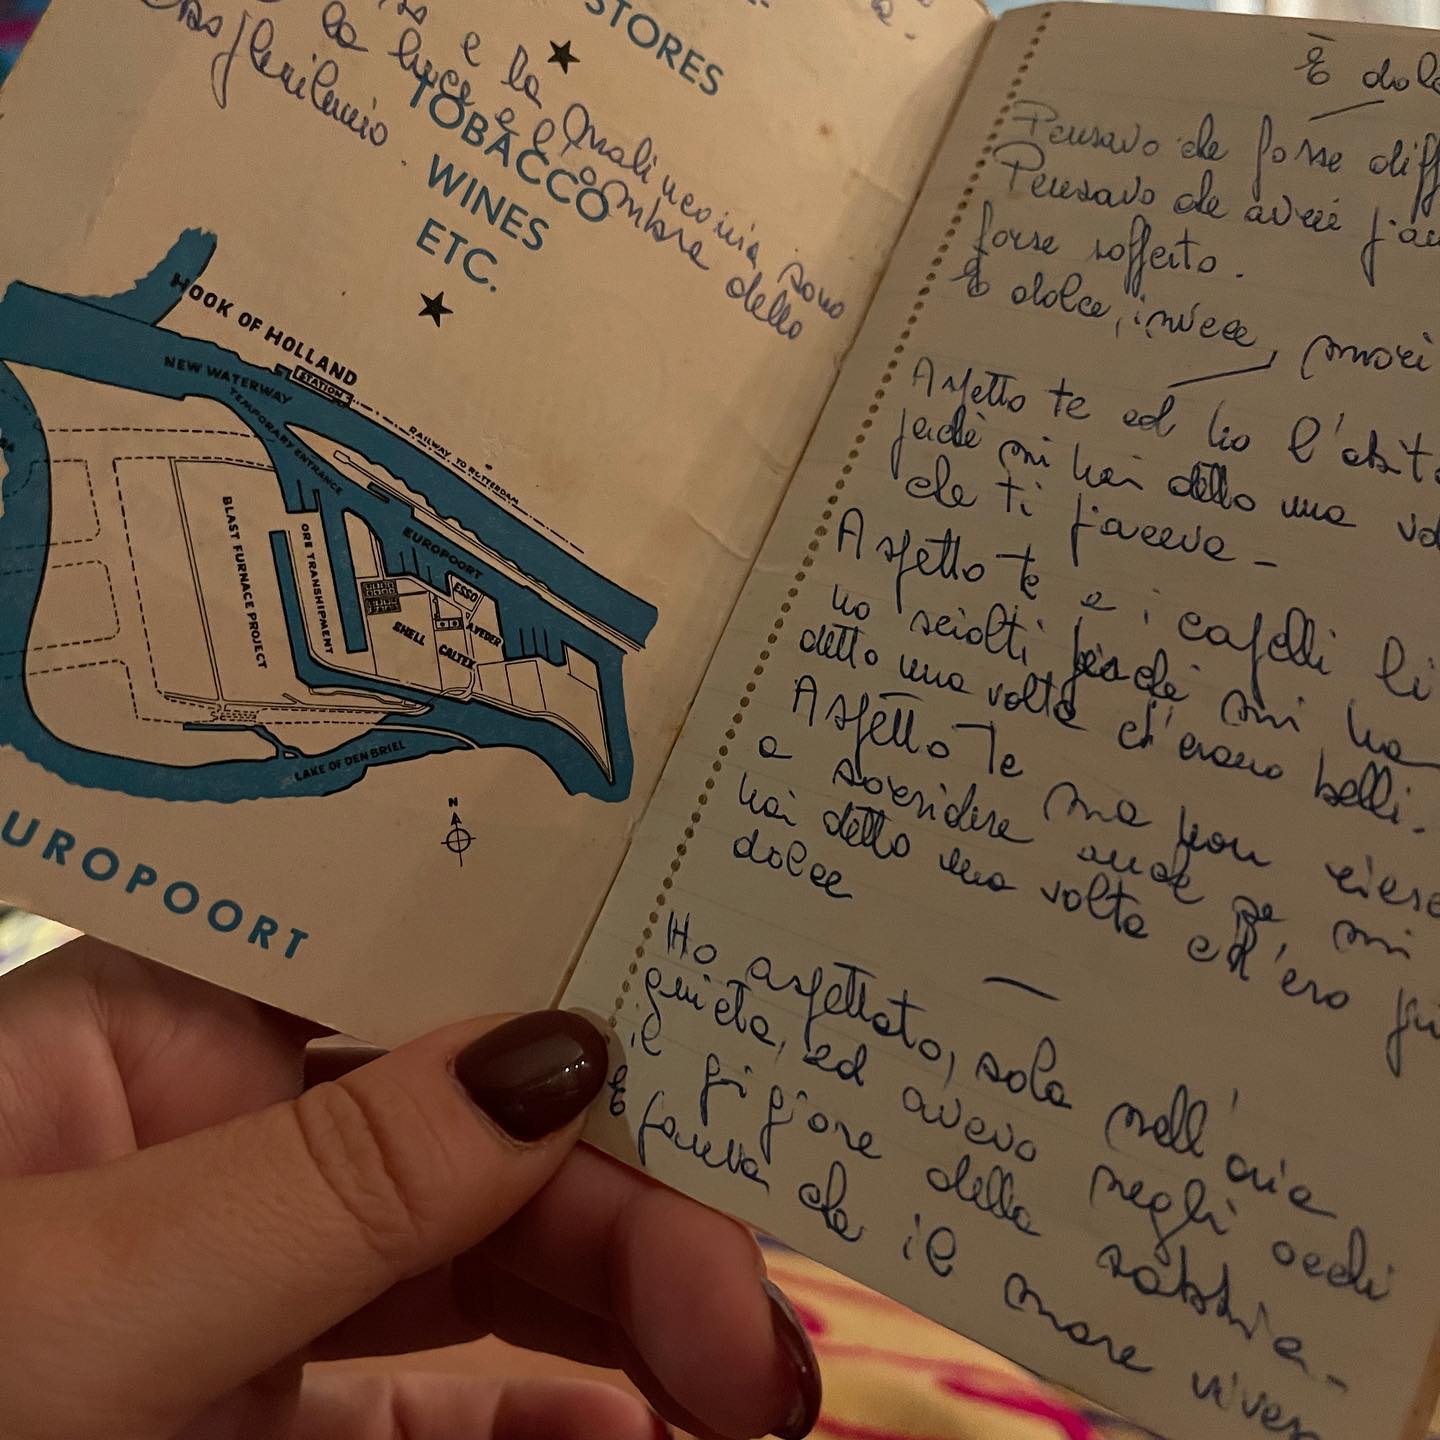 STORES
e la malinconia sono
la luce e l'ombra dello
TOBACCO
WINES
ETC.
HOOK OF HOLLAND
STATION
NEW WATERWAY
TEMPORARY ENTRANCE
RAILWAY TO ROTTERDAM
BLAST FURNACE PROJECT
ORE TRANSHIPMENT
EUROPOORT
ESSO
SHELL
CALTEX
LAKE OF DEN BRIEL
N
UROPOORT
È dolc
Pensavo che fosse diff
Pensavo che avrei
forse sofferto.
È dolce, invece, mori
Aspetto te ed ho l'abit
perchè mi hai detto una vol
che ti piaceva -
Aspetto te e i capelli li
ho sciolti perchè mi ha
detto una volta ch'erano belli.
Aspetto te ma non riesc
a sorridere anche se mi
hai detto una volta ch'ero più
dolce
Ho aspettato, sola nell'aria
quieta, ed avevo negli occhi
il grigiore della sabbia -
E pareva che il mare vives